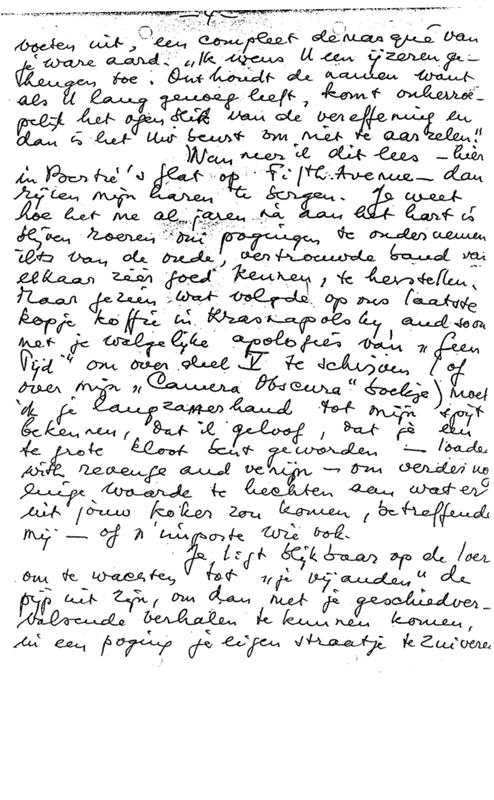 - 4 -
voeten uit, een compleet démasqué van
je ware aard. „Ik wens U een ijzeren ge-
heugen toe. Onthoudt de namen want
als U lang genoeg leeft, komt onherroe-
pelijk het ogenblik van de vereffening en
dan is het Uw beurt om niet te aarzelen."
Wanneer ik dit lees — hier
in Poestré's flat op Fifth Avenue — dan
rijzen mijn haren te bergen. Je weet
hoe het me al jaren na aan het hart is
blijven roeren om pogingen te ondernemen
iets van de oude, vertrouwde band van
elkaar zéér goed kennen, te herstellen.
Maar gezien wat volgde op ons laatste
kopje koffie in Krasnapolsky, and soon
met je walgelijke apologies van „geen
tijd" om over deel V te schrijven (of
over mijn „Camera Obscura" boekje) moet
ik je langzamerhand tot mijn spijt
bekennen, dat ik geloof, dat je een
te grote kloot bent geworden — loaded
with revenge and venijn — om verder nog
enige waarde te hechten aan wat er
uit jouw koker zou komen, betreffende
mij — of n'importe wie ook.
Je ligt blijkbaar op de loer
om te wachten tot „je vijanden" de
pijp uit zijn, om dan met je geschiedver-
valsende verhalen te kunnen komen,
in een poging je eigen straatje te zuiveren